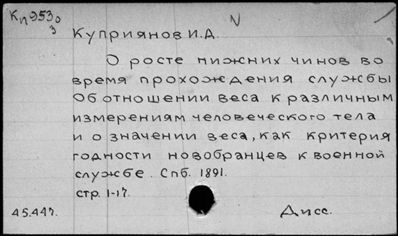 Кп953 0/3
N
Куприянов И.Д.
О росте нижних чинов во
время прохождения службы
Об отношении веса к различным
измерениям человеческого тела
и о значении веса, как критерия
годности новобранцев к военной
службе. Спб. 1891.
стр. 1-17.
45.447.
Дисс.